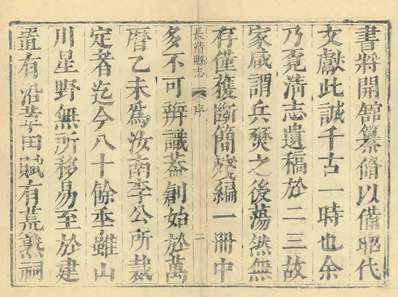 書將開舘纂脩以備昭代
文獻此誠千古一時也余
乃覓清志遺稿於二三故
家咸謂兵燹之後蕩然無
存僅獲斷簡殘編一冊中
長清縣志 序 二
多不可辨識葢創始於萬
曆乙未爲汝南李公所裁
定者迄今八十餘秊雖山
川星野無所移易至於建
置有沿革田賦有荒熟祠